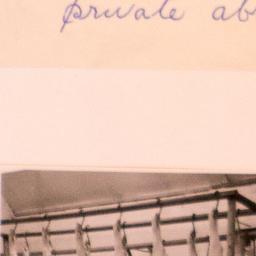 private ab